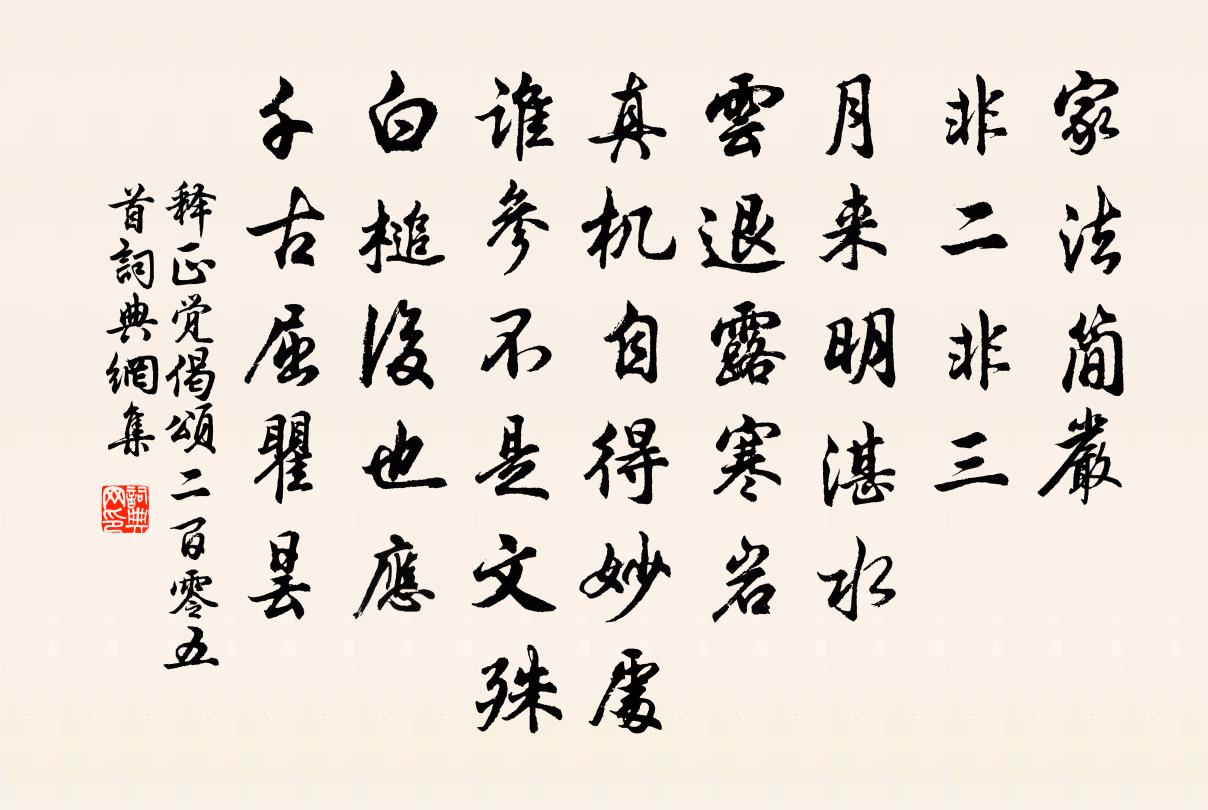 家法简嚴
非二非三
月来明湛水
雲退露寒岩
真机自得妙處
谁參不是文殊
白槌後也應
千古屈瞿昙
释正觉偈頌二百零五
首詞典網集
詞典网印